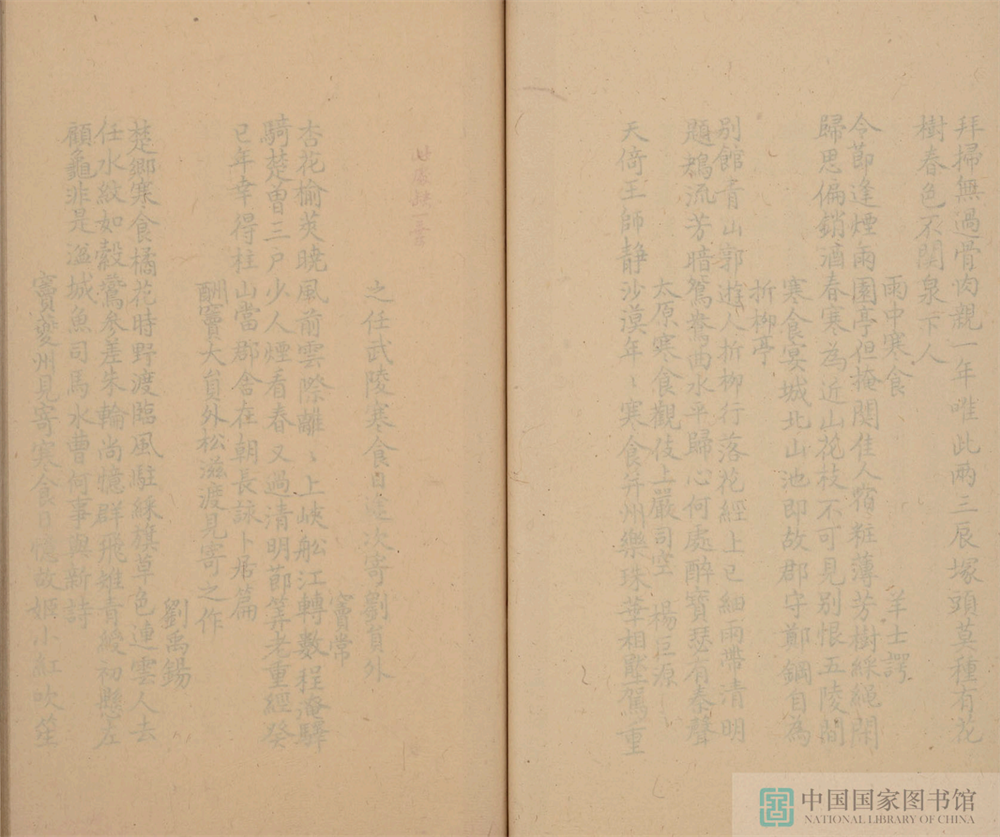 拜掃無過骨肉親一年唯此兩三辰塚頭莫種有花
樹春色不關泉下人
雨中寒食　羊士諤
令節逢煙雨園亭但掩關佳人宿粧薄芳樹綵繩閑
歸思偏銷酒春寒為近山花枝不可見別恨五陵間
寒食宴城北山池即故郡守鄭鋼自為
折柳亭
別館青山郭遊人折柳行落花經上巳細雨帶清明
題鵊流芳暗鴛鴦曲水平歸心何處醉寶瑟有秦聲
太原寒食觀伎上嚴司空　楊巨源
天倚王師静沙漠年〻寒食并州樂珠華相壓駕重
之任武陵寒食日途次寄劉員外
竇常
杏花榆莢曉風前雲際離〻上峽船江轉數程淹驛
騎楚曽三戶少人煙看春又過清明節筭老重經癸
已年幸得柱山當郡舍在朝長詠卜居篇
酬竇大員外松滋渡見寄之作
劉禹錫
楚鄉寒食橘花時野渡臨風駐綵旗草色連雲人去
任水紋如縠鷰參差朱輪尚憶群飛雉青綬初懸左
顧龜非是湓城魚司馬水曹何事與新詩
竇夔州見寄寒食日憶故姬小紅吹笙
中国国家图书馆
NATIONAL LIBRARY OF CHINA